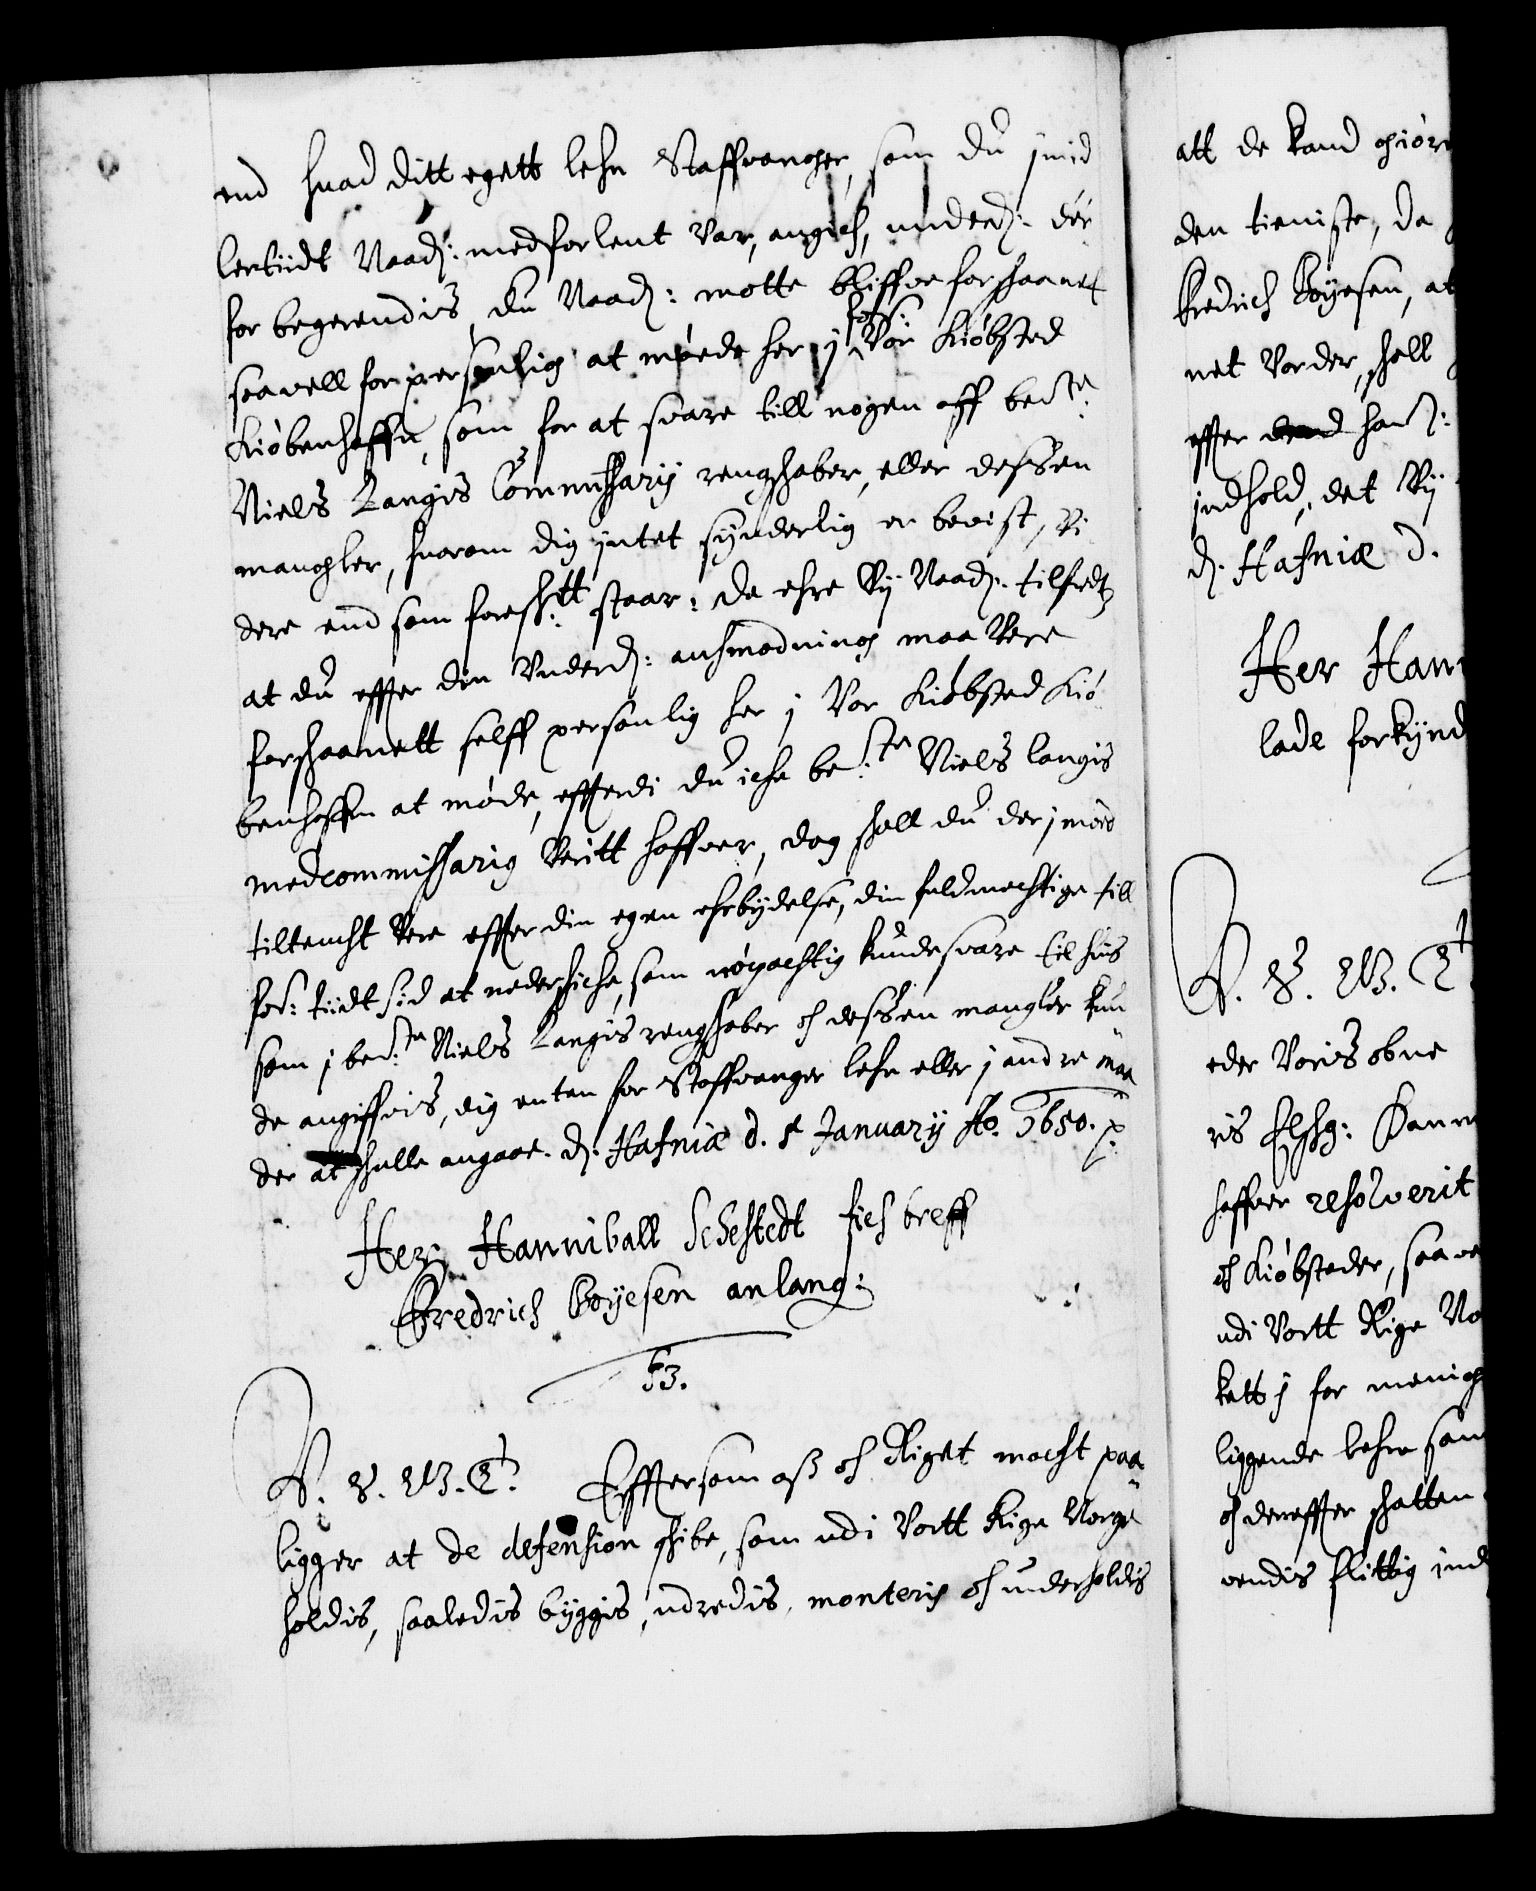 end huad ditt egett lehn Staffvanger, som du imid
lertiidt Naadj: medforlent var, angich, underdj: der
for begerendis, du Naadj: motte bliffve forschaanet
saavell for personlig at møede her j foss: Vor Kiøbsted
Kiøbenhaffn, som for at svare till nogen aff bete:
Niels Langis Commissarij rengschaber, eller dessen
mangler, huorom dig intet synderlig er bevist, vi
dere end som foreschtt: staar: da ehre Wij Naadj: tilfredtz
at du effter din Underdj: anhmodning maa Vere
forschaanett selff personlig her j Vor Kiøbsted Kiø
benhaffn at møde, efftterdi du iche be:te Niels langis
medcommissarig Veritt haffver, dog schall du der jmod
tiltencht Vere effter din egen ehrbydelse, din fuldmechtige till
fos: tiidt hid at nederschiche, som nøyachtig kunde svare til huis
som j bete: Niels Langis rengschaber och dessen mangler kun
de angiffvis, dig enten for Staffvanger lehn eller j andre maa
der at schulle angaae. dj: Hafniæ d. 5 January Ao. 1650. p:
Her Hanniball Sehestedt fich breff
Fredrich Boyesen anlang:
53.
V. S. W. G.t Efftersom oss och Riget macht paa
ligger at de defension schibe, som udi Vortt Rige Norge
holdis, saaledis byggis, udredis, monteris och underholdis
att de kand giøre
den tieniste, da
Fredrich Boyesen, at
net vorder, schall
effter hans:
indhold, det Wij
dj. Hafniæ d.
Her Hann
lade forkynd
V. S. W. G.t
eder Voris obne
ris Elschg: Dann
haffver resolverit
och Kiøbsteder, saa ve
udi Vortt Rige No
kett j for menig
liggende lehne sam
och dereffter schatten
vendis flittig ind